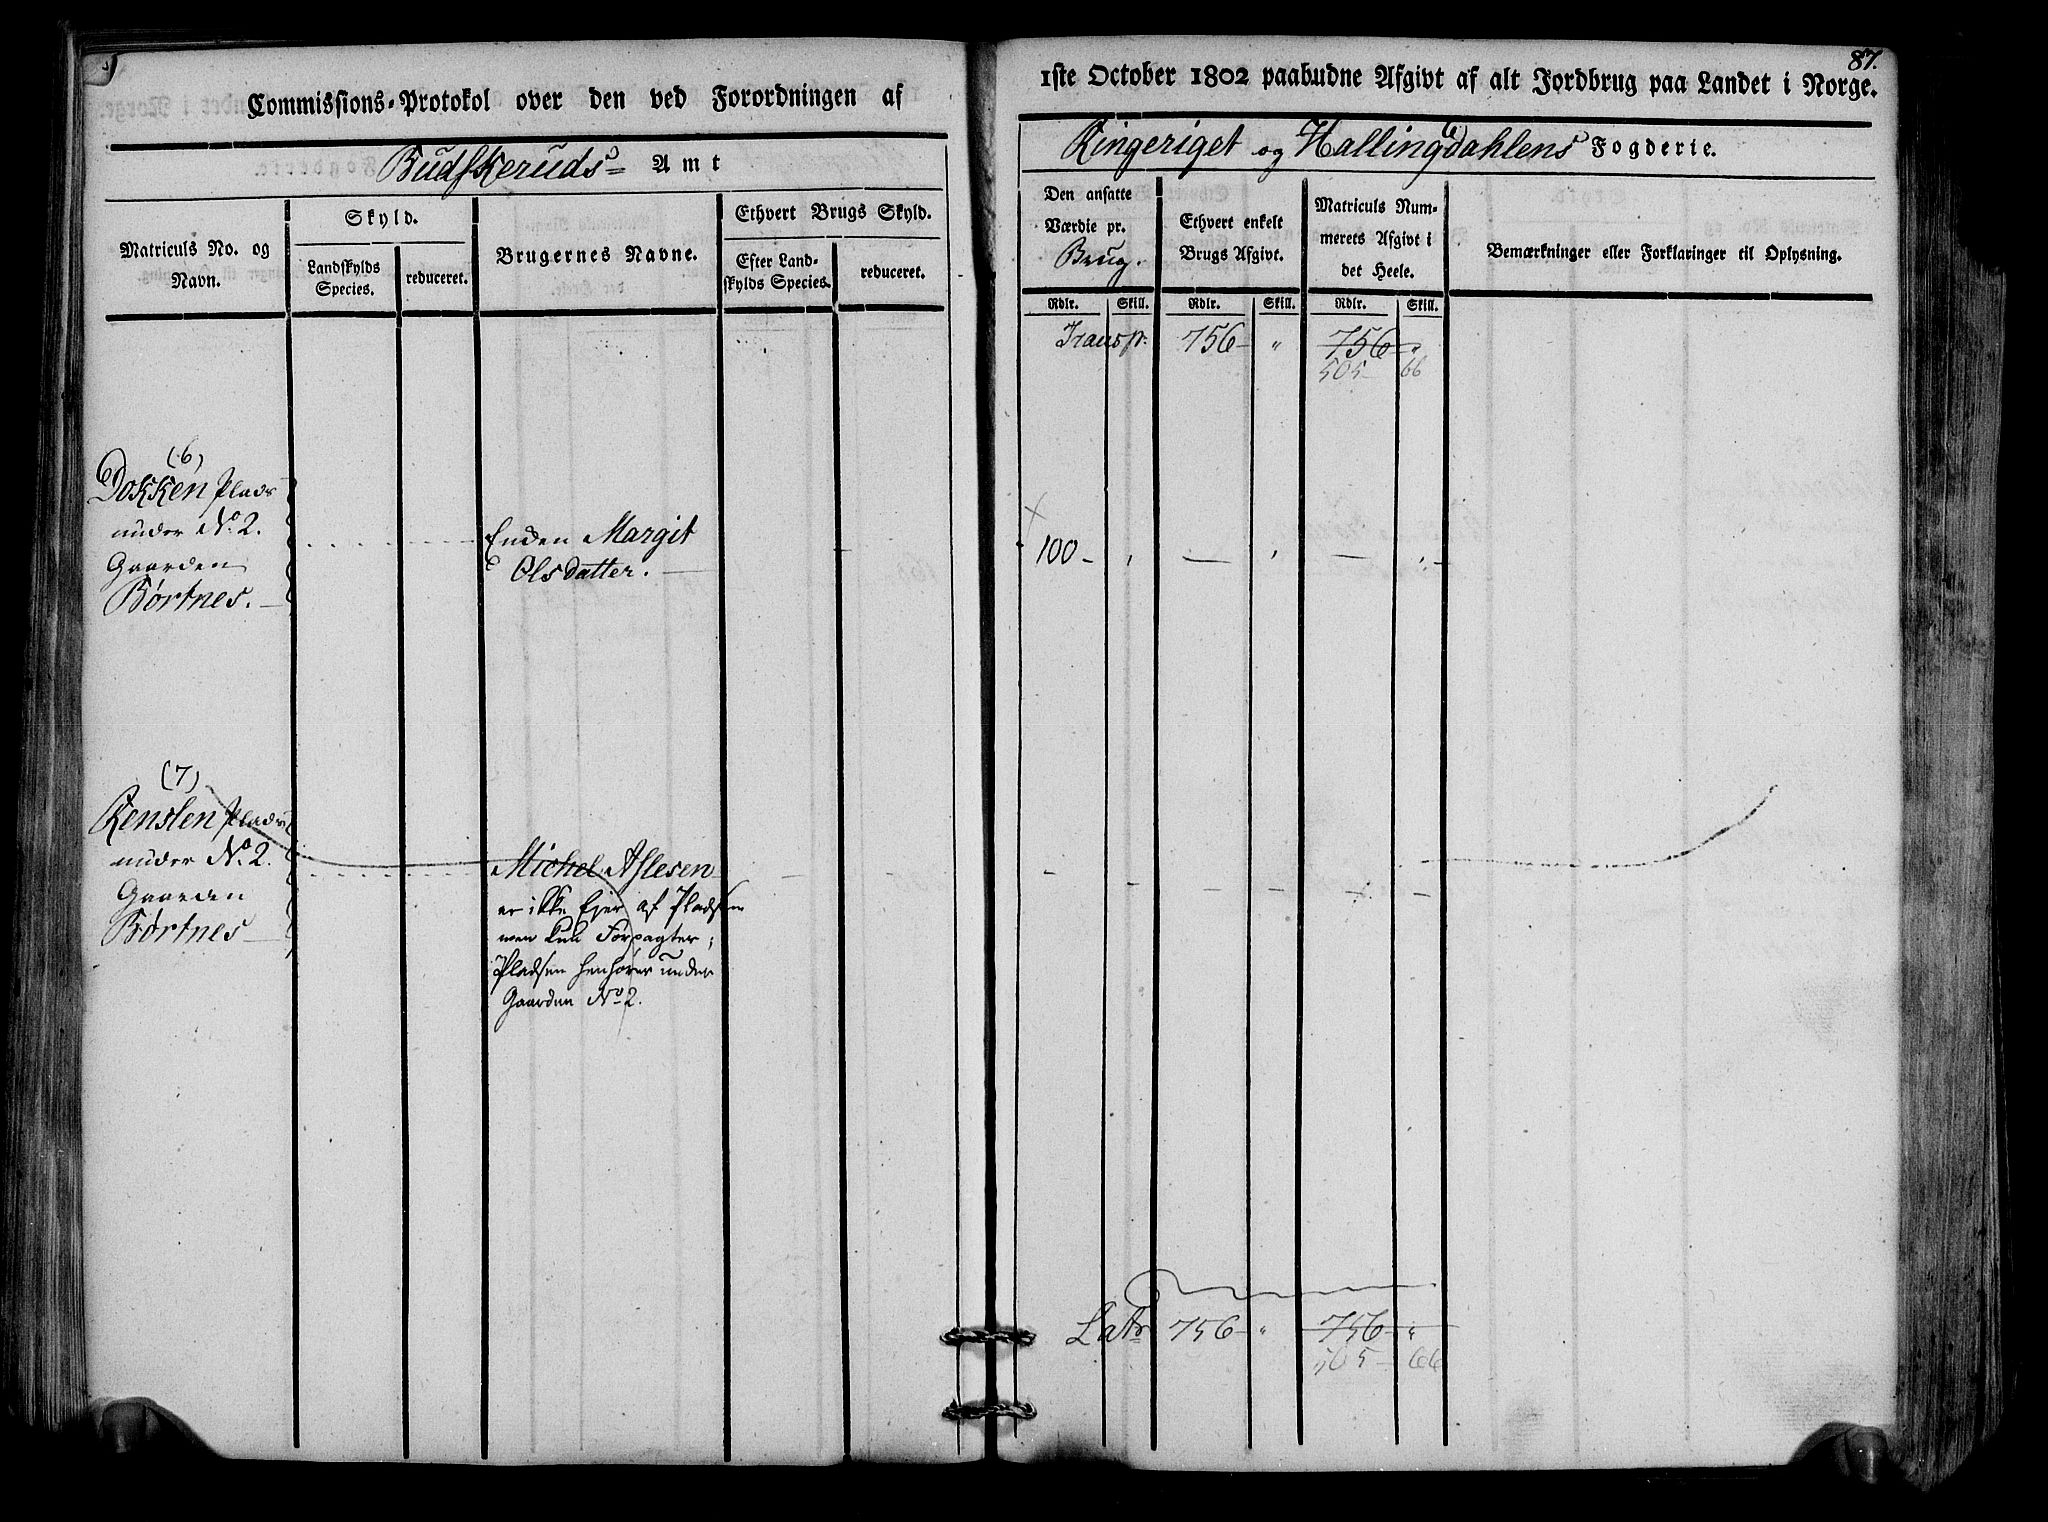 Commissions-Protokol over den ved Forordningen af
Budskeruds Amt
Matriculs No. og Navn.
Skyld.
Landskylds Species.
reduceret.
Brugernes Navne.
Ethvert Brugs Skyld.
Efter Landskylds Species.
reduceret.
(6)
Dokken Plads
under No. 2.
Gaarden
Børtnes.
Enden Margit
Olsdatter.
(7)
Renslen Plads
under No. 2.
Gaarden
Børtnes
Michel Aslesen
er ikke Ejer af Pladsen
men kun Forpagter;
Pladsen henhører under
Gaarden No 2.
87.
1ste October 1802 paabudne Afgivt af alt Jordbrug paa Landet i Norge.
Ringeriget og Hallingdahlens Fogderie.
Den ansatte
Værdie pr.
Brug.
Ethvert enkelt
Brugs Afgivt.
Matriculs Num-
merets Afgivt i
det Heele.
Bemærkninger eller Forklaringer til Oplysning.
Rdlr. Skill. Rdlr. Skill. Rdlr. Skill.
Transp. 756 - " 756 - "
505 - 66
×
100 - , — , — ,
Latr 756 - " 756 - "
505 - 66